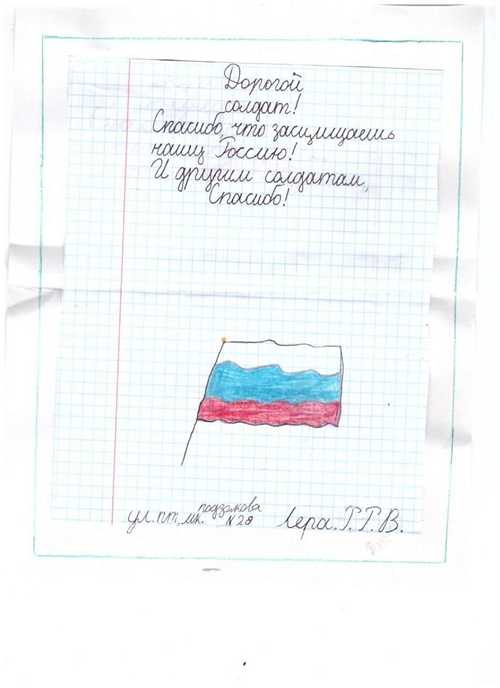 Дорогой
солдат!
Спасибо, что засщищаешь
нашу Россию!
И другим солдатам,
Спасибо!
подзолкова
ул. пт. мк. N 28 Лера. Г. Г. В.